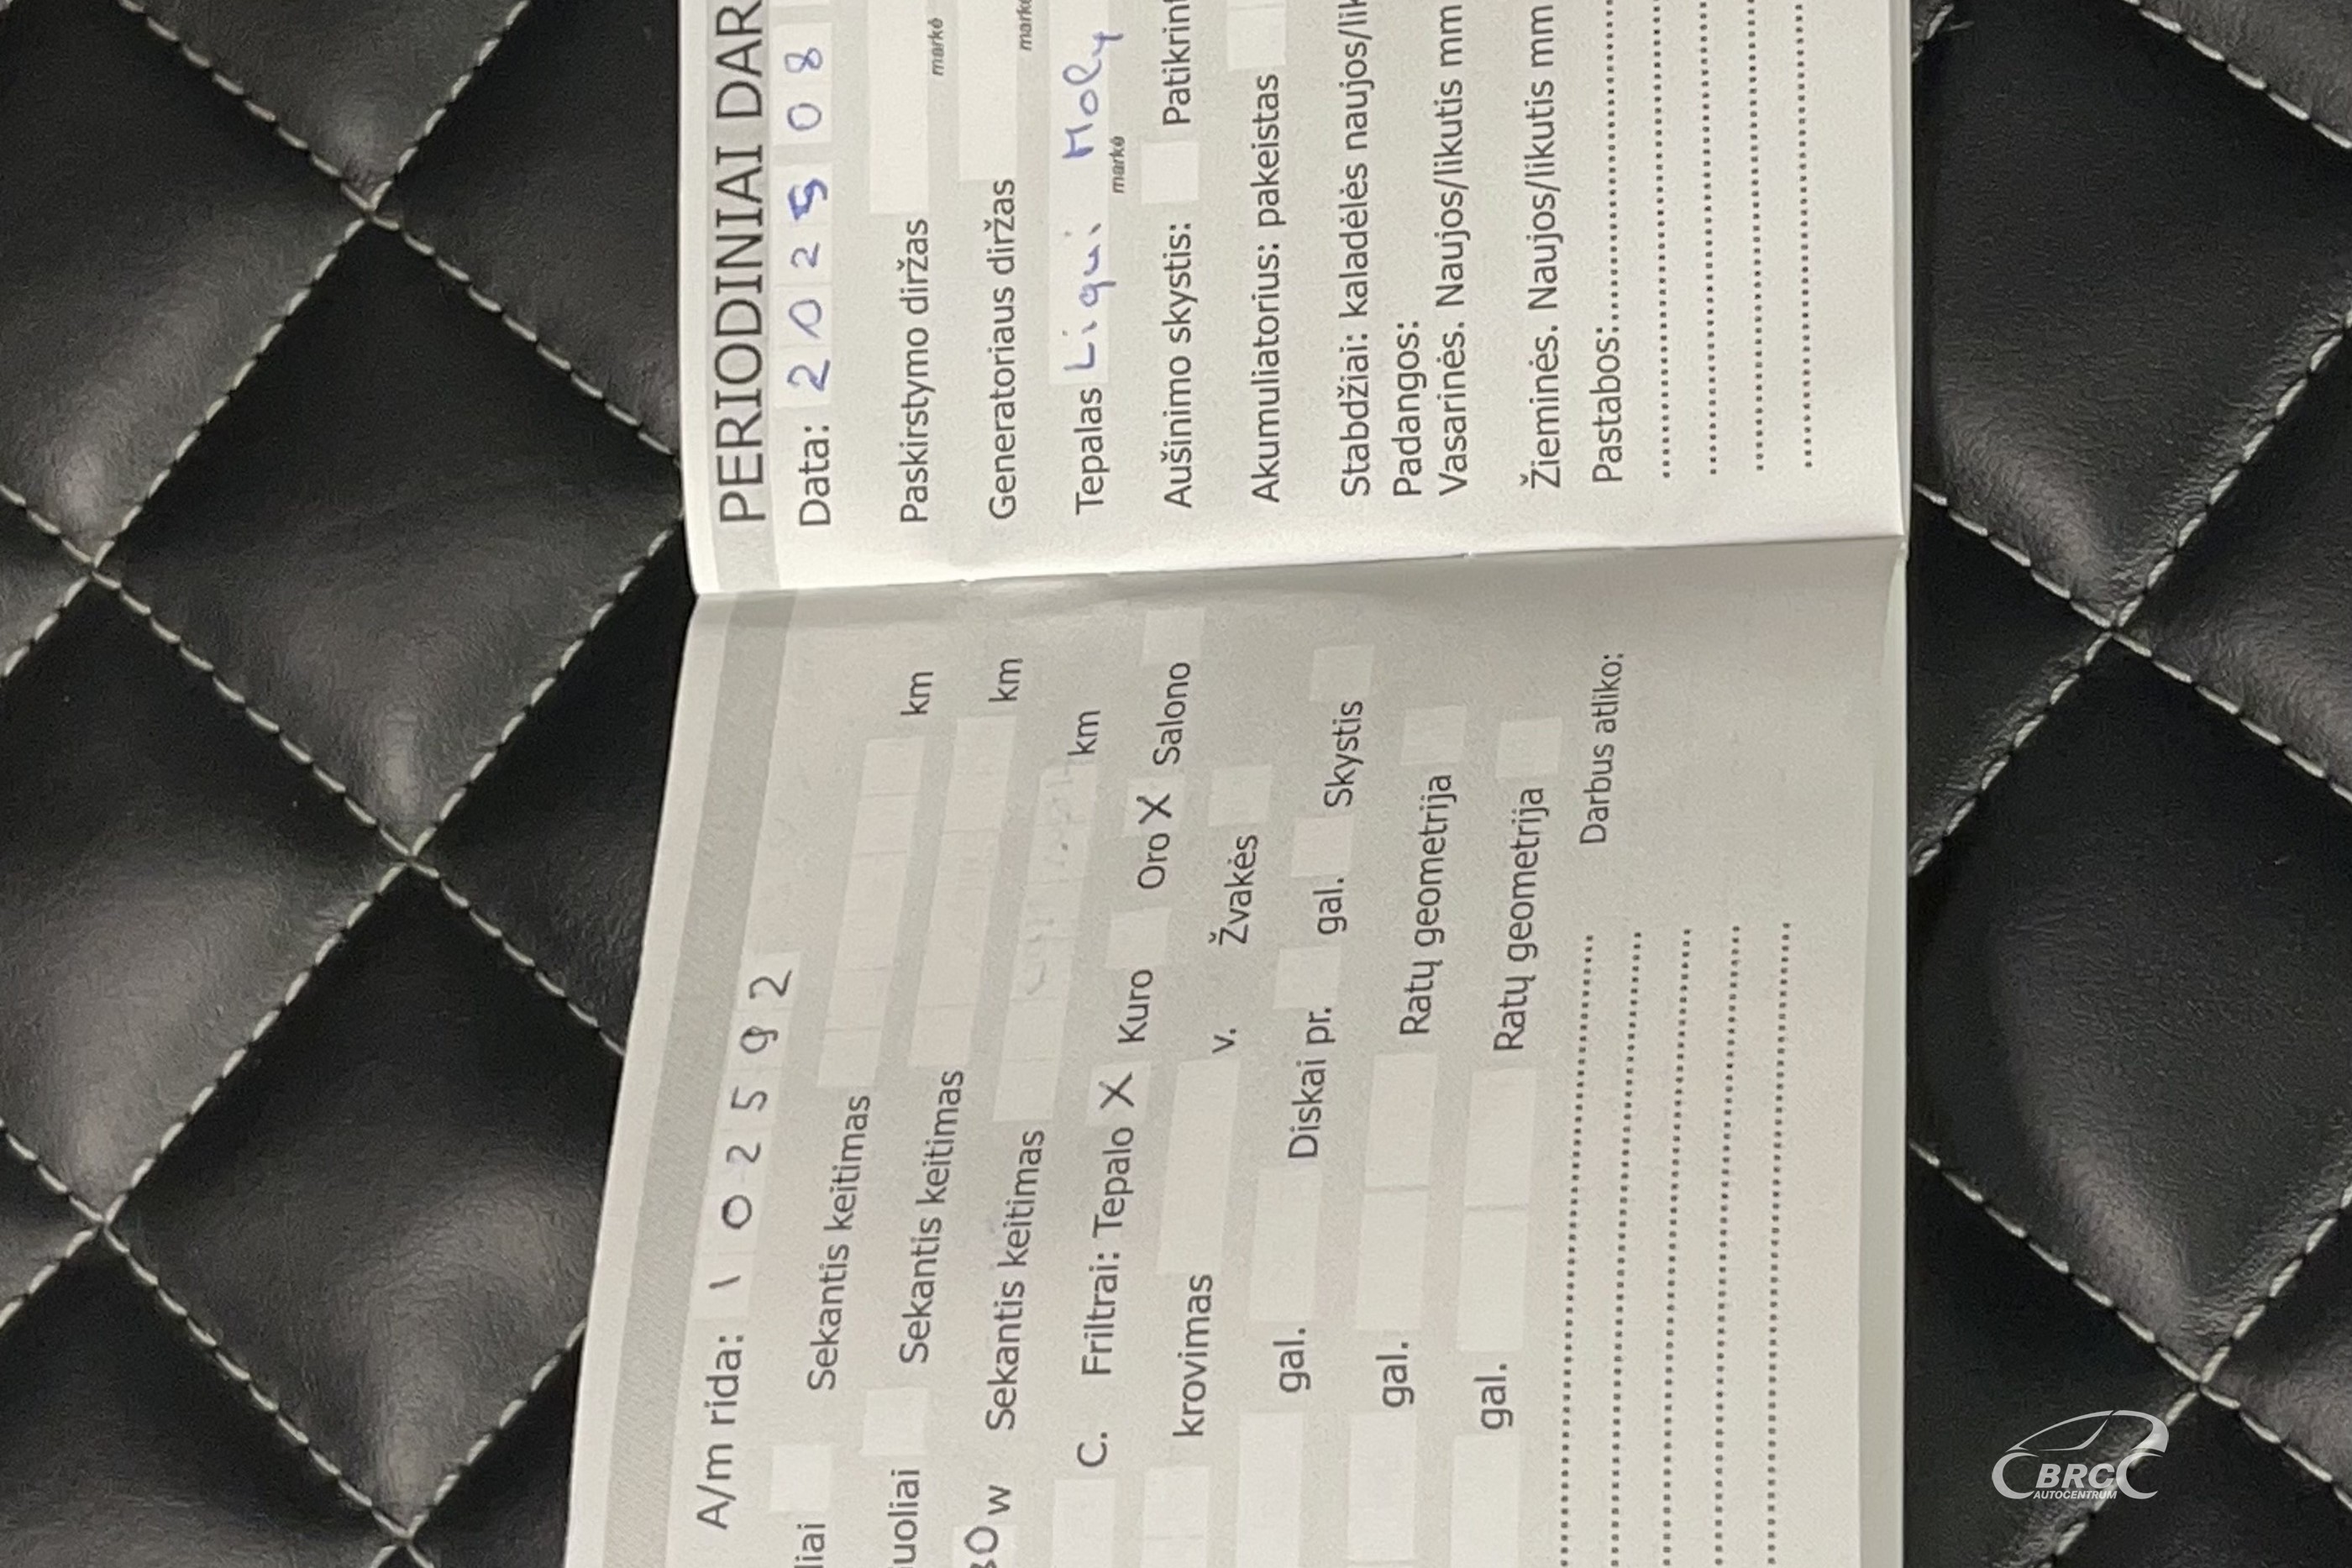 A/m rida: 102592
liai Sekantis keitimas km
uoliai Sekantis keitimas km
30w Sekantis keitimas km
C. Friltrai: Tepalo X Kuro Oro X Salono
krovimas v. Žvakės
gal. Diskai pr. gal. Skystis
gal. Ratų geometrija
gal. Ratų geometrija
Darbus atliko:
PERIODINIAI DAR
Data: 2025 08
Paskirstymo diržas
markė
Generatoriaus diržas
markė
Tepalas Liqui Moly
markė
Aušinimo skystis: Patikrint
Akumuliatorius: pakeistas
Stabdžiai: kaladėlės naujos/lik
Padangos:
Vasarinės. Naujos/likutis mm
Žieminės. Naujos/likutis mm
Pastabos:
BRC
AUTOCENTRUM